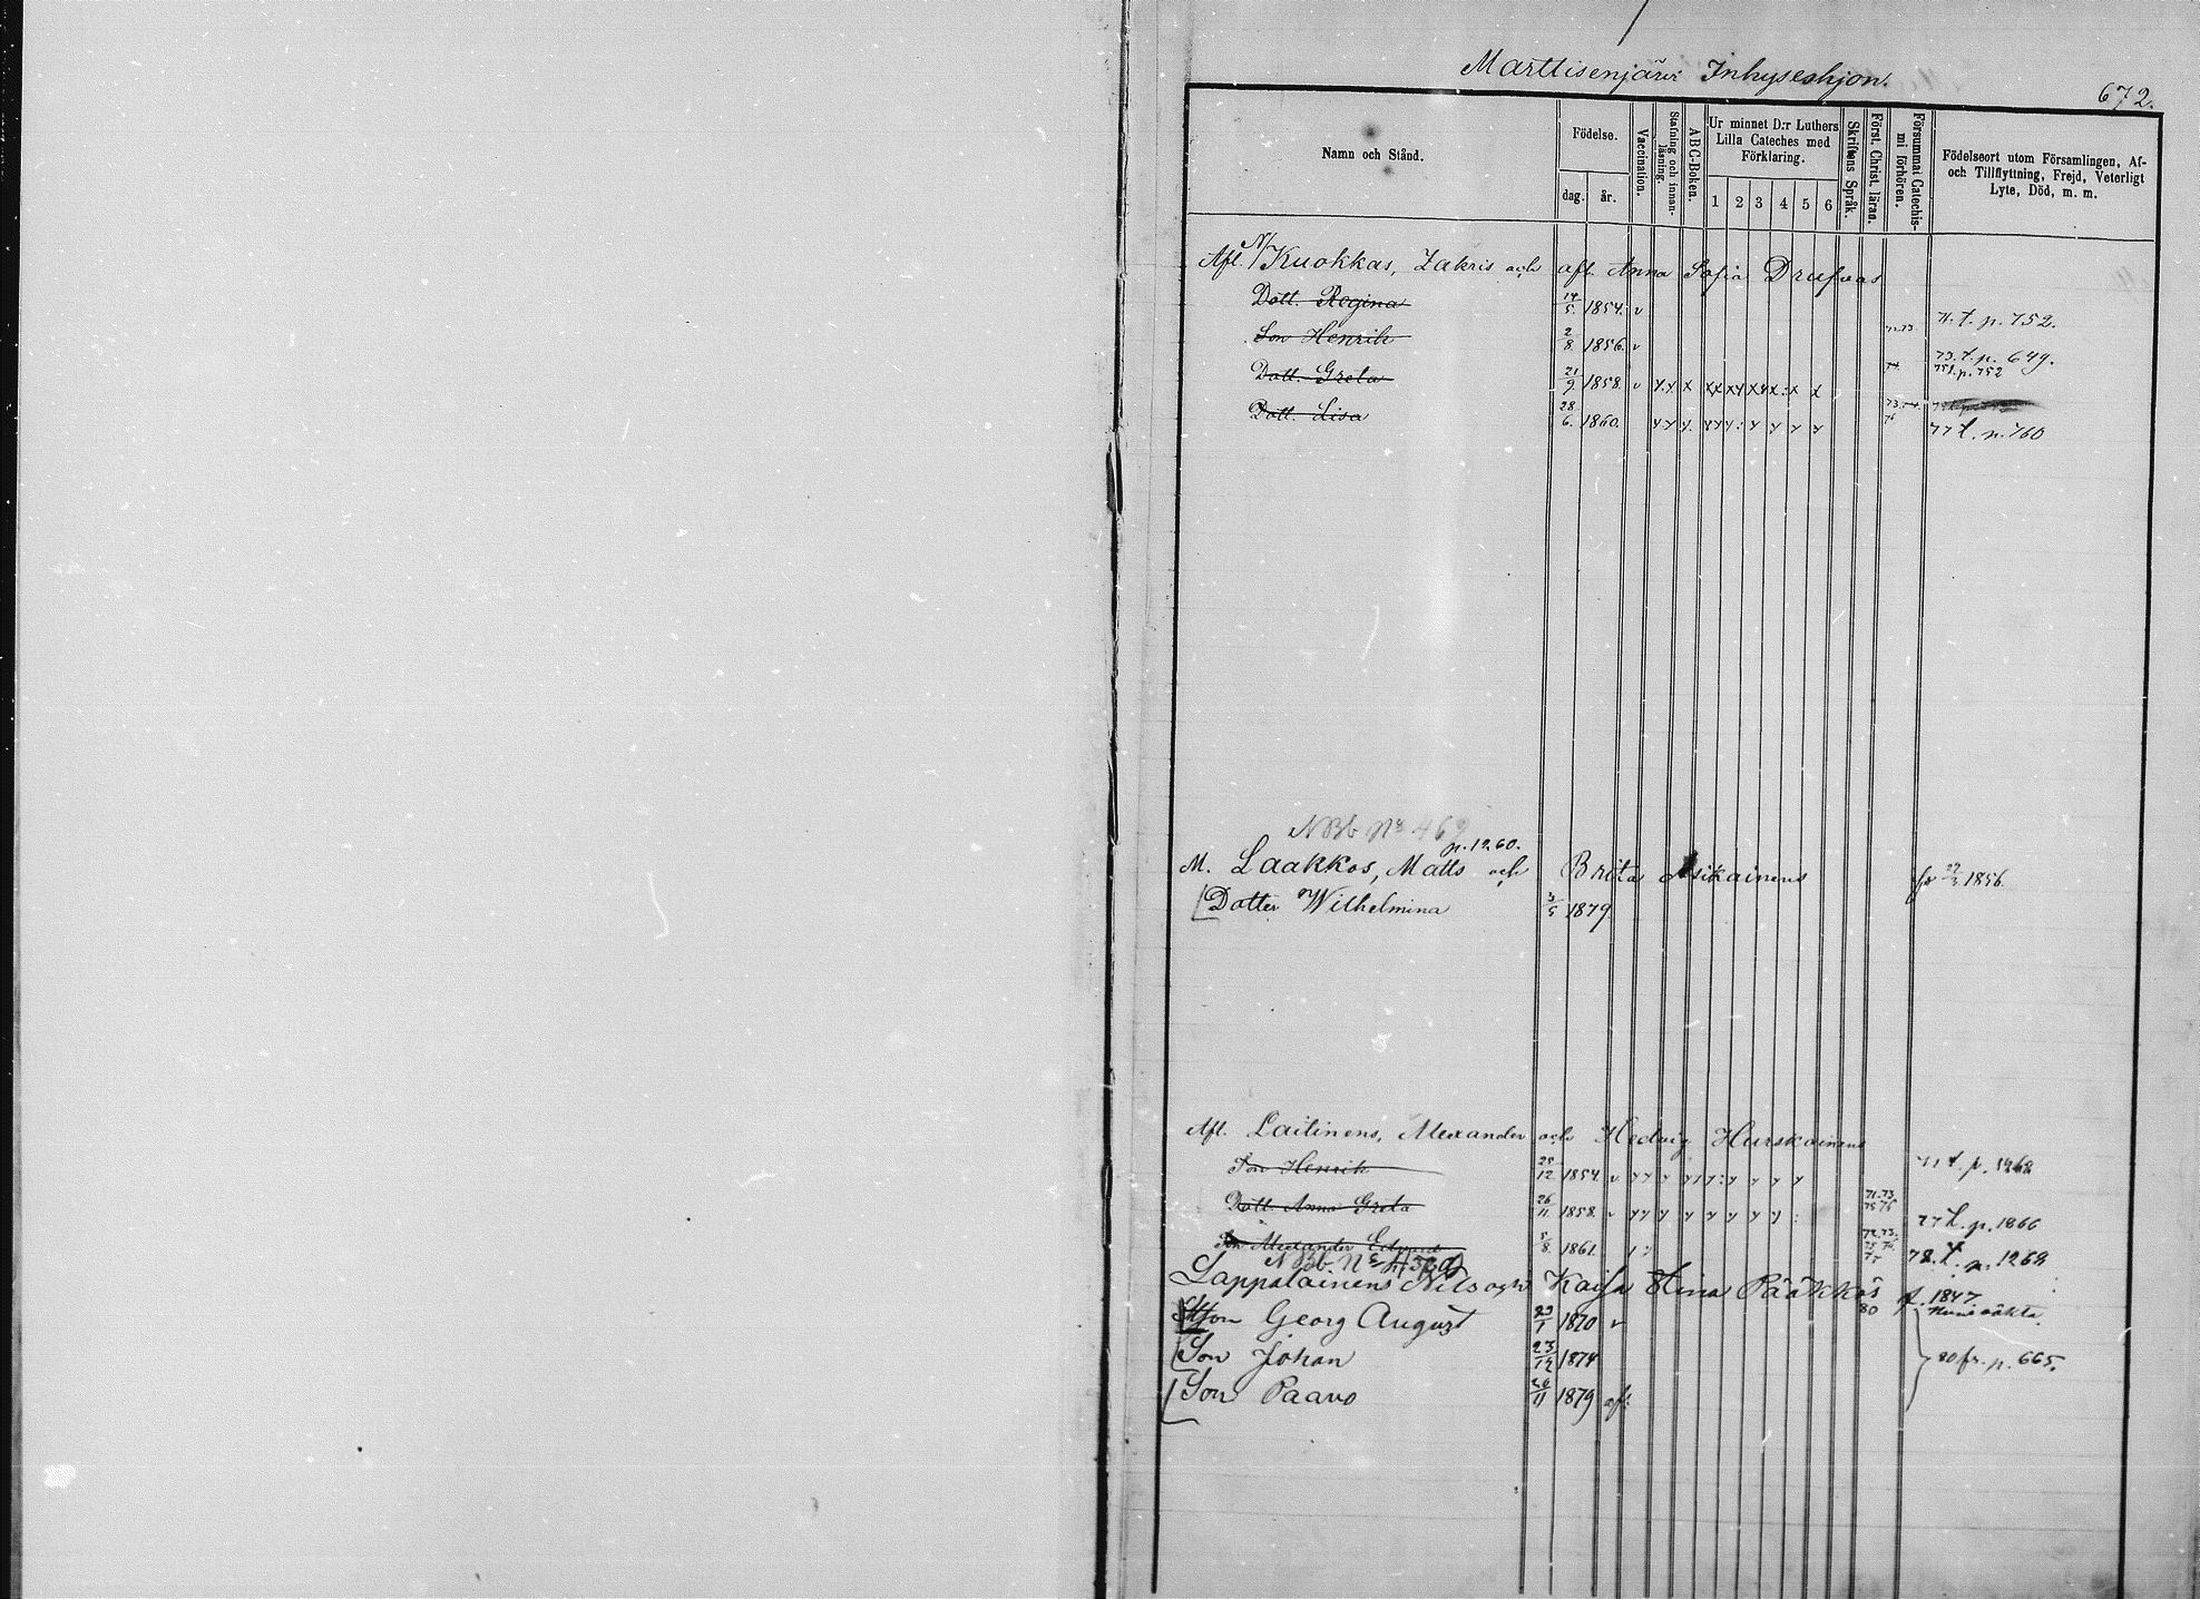 Marttisenjärvi Inhyseshjon.
672.
Namn och Stånd.
Födelse.
dag. år.
Vaccination.
Stafning och innanläsning.
ABC-Boken.
Ur minnet D:r Luthers Lilla Cateches med Förklaring.
1 2 3 4 5 6
Skriftens Språk.
Först. Christ. läran.
Försummat Catechismi förhören.
Födelseort utom Församlingen, Af- och Tillflyttning, Frejd, Veterligt Lyte, Död, m. m.
Afl. N/Kuokkas, Zakris och afl. Anna Sofia Drufvas
Dott. Regina 14/5. 1854. v 71. t. p. 752.
Son Henrik 2/8. 1856. v 72.73. 73. t. p. 649.
Dott. Greta 21/9 1858. v 74. 75 t. p. 752
Dott. Lisa 28/6. 1860. 73. 74. 76 77 t. p. 760
NBb No 469
p. 1260.
M. Laakkos, Matts och Brita Asikainens 1856.
Dotter Wilhelmina 3/5 1879
Afl. Laitinens, Alexander och Hedvig Hurskainens
Son Henrik 25/12 1854. v 71 t. p. 1268
Dott. Anna Greta 26/11 1858. v 71.73. 75 76 77 t. p. 1866
Son Alexander Edvard 5/8. 1861. 78. t. p. 1268
NBb No
Lappalainens Nils och Kaisa Stina Pääkkös f. 1847
Son Georg August 1870 v 80
Son Johan 23/12 1874 80 fr. p. 665.
Son Paavo 26/11 1879 af: